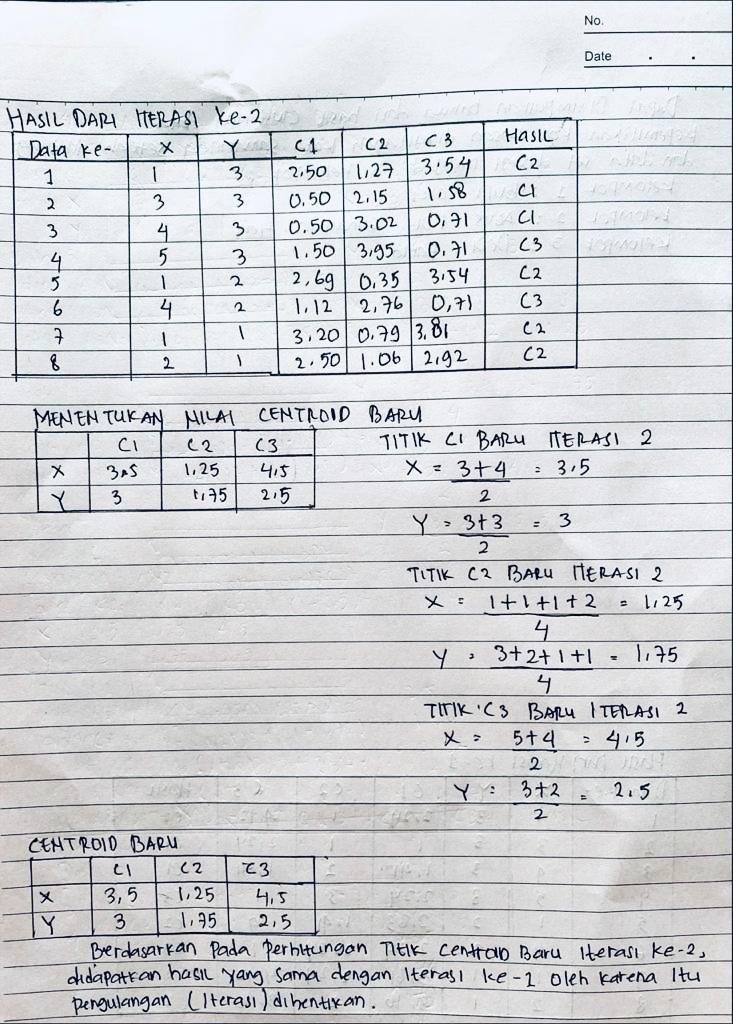 No.
Date . .
HASIL DARI ITERASI ke-2
Data ke- X Y C1 C2 C3 HASIL
1 1 3 2,50 1,27 3,54 C2
2 3 3 0,50 2,15 1,58 C1
3 4 3 0,50 3.02 0,71 C1
4 5 3 1.50 3,95 0,71 C3
5 1 2 2,69 0,35 3,54 C2
6 4 2 1,12 2,76 0,71 C3
7 1 1 3.20 0.79 3,81 C2
8 2 1 2.50 1.06 2,92 C2
MENENTUKAN NILAI CENTROID BARU
C1 C2 C3
X 3,5 1,25 4,5
Y 3 1,75 2,5
TITIK C1 BARU ITERASI 2
X = 3+4 = 3,5
2
Y = 3+3 = 3
2
TITIK C2 BARU ITERASI 2
X = 1+1+1+2 = 1,25
4
Y = 3+2+1+1 = 1,75
4
TITIK C3 BARU ITERASI 2
X = 5+4 = 4,5
2
Y = 3+2 = 2,5
2
CENTROID BARU
C1 C2 C3
X 3,5 1,25 4,5
Y 3 1,75 2,5
Berdasarkan pada perhitungan TITIK centroid Baru Iterasi ke-2,
didapatkan hasil yang sama dengan Iterasi ke-1 oleh karena itu
pengulangan (Iterasi) dihentikan.